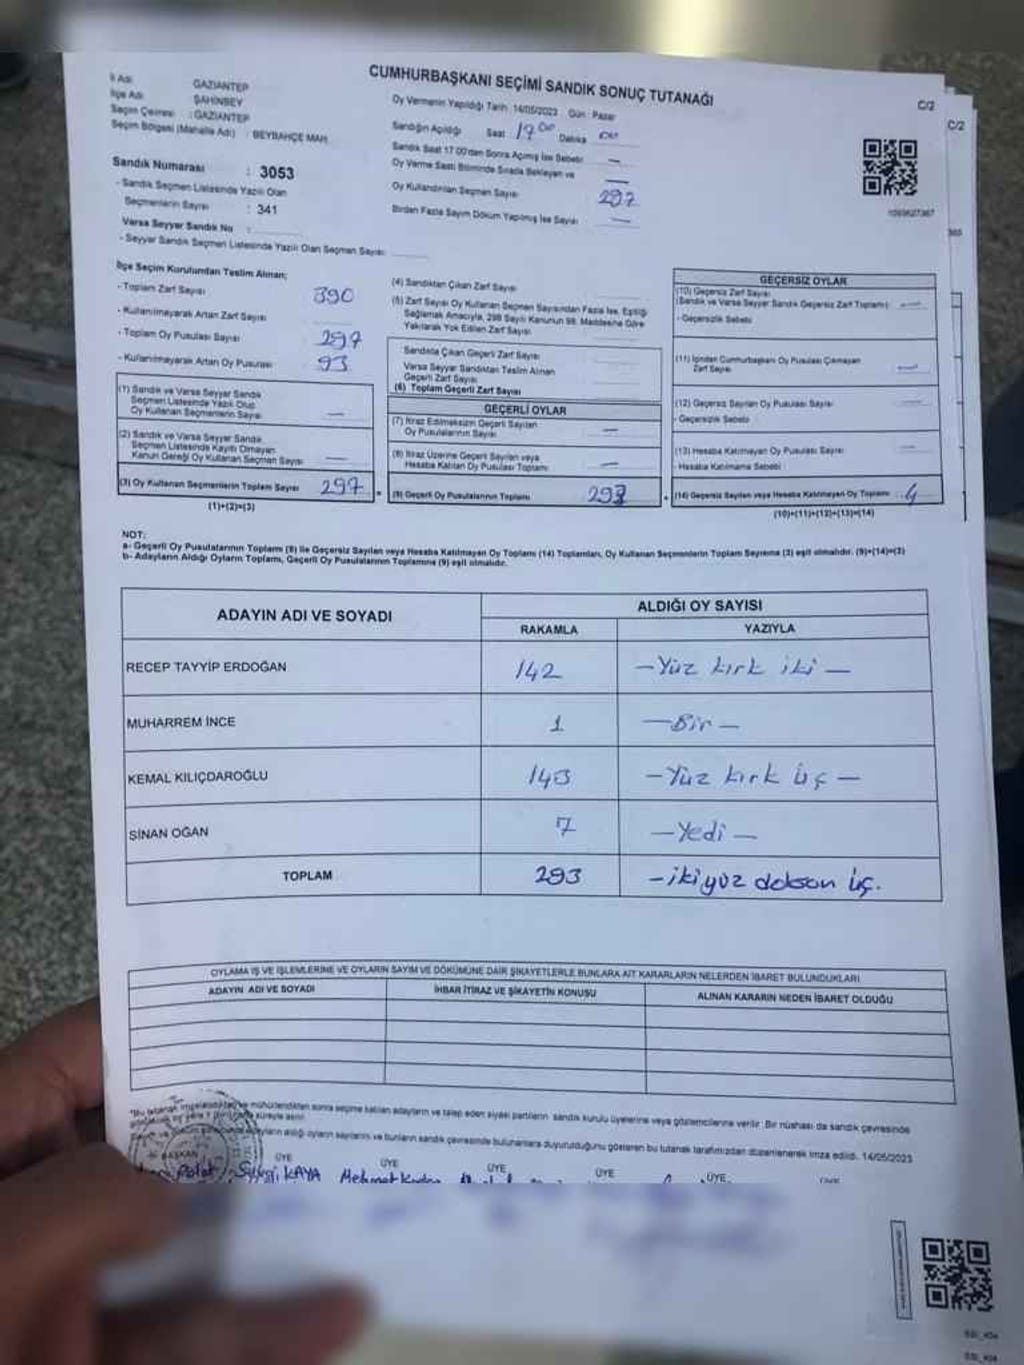 CUMHURBAŞKANI SEÇİMİ SANDIK SONUÇ TUTANAĞI
C/2
C/2
İl Adı GAZİANTEP
İlçe Adı ŞAHİNBEY
Seçim Çevresi : GAZİANTEP
Seçim Bölgesi (Mahalle Adı) : BEYBAHÇE MAH
Sandık Numarası : 3053
- Sandık Seçmen Listesinde Yazılı Olan
Seçmenlerin Sayısı : 341
Varsa Seyyar Sandık No :
- Seyyar Sandık Seçmen Listesinde Yazılı Olan Seçmen Sayısı:
Oy Vermenin Yapıldığı Tarih: 14/05/2023 Gün : Pazar
Sandığın Açıldığı Saat 17 Dakika
Sandık Saat 17:00'dan Sonra Açılmış İse Sebebi —
Oy Verme Saati Bitiminde Sırada Bekleyen ve —
Oy Kullandırılan Seçmen Sayısı 297
Birden Fazla Sayım Döküm Yapılmış İse Sayısı —
İlçe Seçim Kurulundan Teslim Alınan;
- Toplam Zarf Sayısı 390
- Kullanılmayarak Artan Zarf Sayısı
- Toplam Oy Pusulası Sayısı 297
- Kullanılmayarak Artan Oy Pusulası 93
(1) Sandık ve Varsa Seyyar Sandık
Seçmen Listesinde Yazılı Olup
Oy Kullanan Seçmenlerin Sayısı —
(2) Sandık ve Varsa Seyyar Sandık
Seçmen Listesinde Kayıtlı Olmayan
Kanun Gereği Oy Kullanan Seçmen Sayısı —
(3) Oy Kullanan Seçmenlerin Toplam Sayısı 297
(1)+(2)=(3)
(4) Sandıktan Çıkan Zarf Sayısı
(5) Zarf Sayısı Oy Kullanan Seçmen Sayısından Fazla İse, Eşitliği
Sağlamak Amacıyla, 298 Sayılı Kanunun 98. Maddesine Göre
Yakılarak Yok Edilen Zarf Sayısı
Sandıkta Çıkan Geçerli Zarf Sayısı
Varsa Seyyar Sandıktan Teslim Alınan
Geçerli Zarf Sayısı
(6) Toplam Geçerli Zarf Sayısı
GEÇERLİ OYLAR
(7) İtiraz Edilmeksizin Geçerli Sayılan
Oy Pusulalarının Sayısı —
(8) İtiraz Üzerine Geçerli Sayılan veya
Hesaba Katılan Oy Pusulası Toplamı —
(9) Geçerli Oy Pusulalarının Toplamı 293
GEÇERSİZ OYLAR
(10) Geçersiz Zarf Sayısı
(Sandık ve Varsa Seyyar Sandık Geçersiz Zarf Toplamı) —
- Geçersizlik Sebebi
(11) İçinden Cumhurbaşkanı Oy Pusulası Çıkmayan
Zarf Sayısı —
(12) Geçersiz Sayılan Oy Pusulası Sayısı
- Geçersizlik Sebebi
(13) Hesaba Katılmayan Oy Pusulası Sayısı
- Hesaba Katılmama Sebebi
(14) Geçersiz Sayılan veya Hesaba Katılmayan Oy Toplamı 4
(10)+(11)+(12)+(13)=(14)
NOT:
a- Geçerli Oy Pusulalarının Toplamı (9) ile Geçersiz Sayılan veya Hesaba Katılmayan Oy Toplamı (14) Toplamları, Oy Kullanan Seçmenlerin Toplam Sayısına (3) eşit olmalıdır. (9)+(14)=(3)
b- Adayların Aldığı Oyların Toplamı, Geçerli Oy Pusulalarının Toplamına (9) eşit olmalıdır.
ADAYIN ADI VE SOYADI ALDIĞI OY SAYISI
RAKAMLA YAZIYLA
RECEP TAYYİP ERDOĞAN 142 — Yüz kırk iki —
MUHARREM İNCE 1 — Bir —
KEMAL KILIÇDAROĞLU 143 — Yüz kırk üç —
SİNAN OĞAN 7 — Yedi —
TOPLAM 293 — ikiyüz doksan üç.
OYLAMA İŞ VE İŞLEMLERİNE VE OYLARIN SAYIM VE DÖKÜMÜNE DAİR ŞİKAYETLERLE BUNLARA AİT KARARLARIN NELERDEN İBARET BULUNDUKLARI
ADAYIN ADI VE SOYADI İHBAR İTİRAZ VE ŞİKAYETİN KONUSU ALINAN KARARIN NEDEN İBARET OLDUĞU
"Bu tutanak imzalandıktan ve mühürlendikten sonra seçime katılan adayların ve talep eden siyasi partilerin sandık kurulu üyelerine veya gözlemcilerine verilir. Bir nüshası da sandık çevresinde
süreyle asılır.
adayların aldığı oyların sayılarını ve bunların sandık çevresinde bulunanlara duyurulduğunu gösteren bu tutanak tarafımızdan düzenlenerek imza edildi. 14/05/2023
BAŞKAN ÜYE ÜYE ÜYE ÜYE ÜYE
Polat KAYA Mehmet